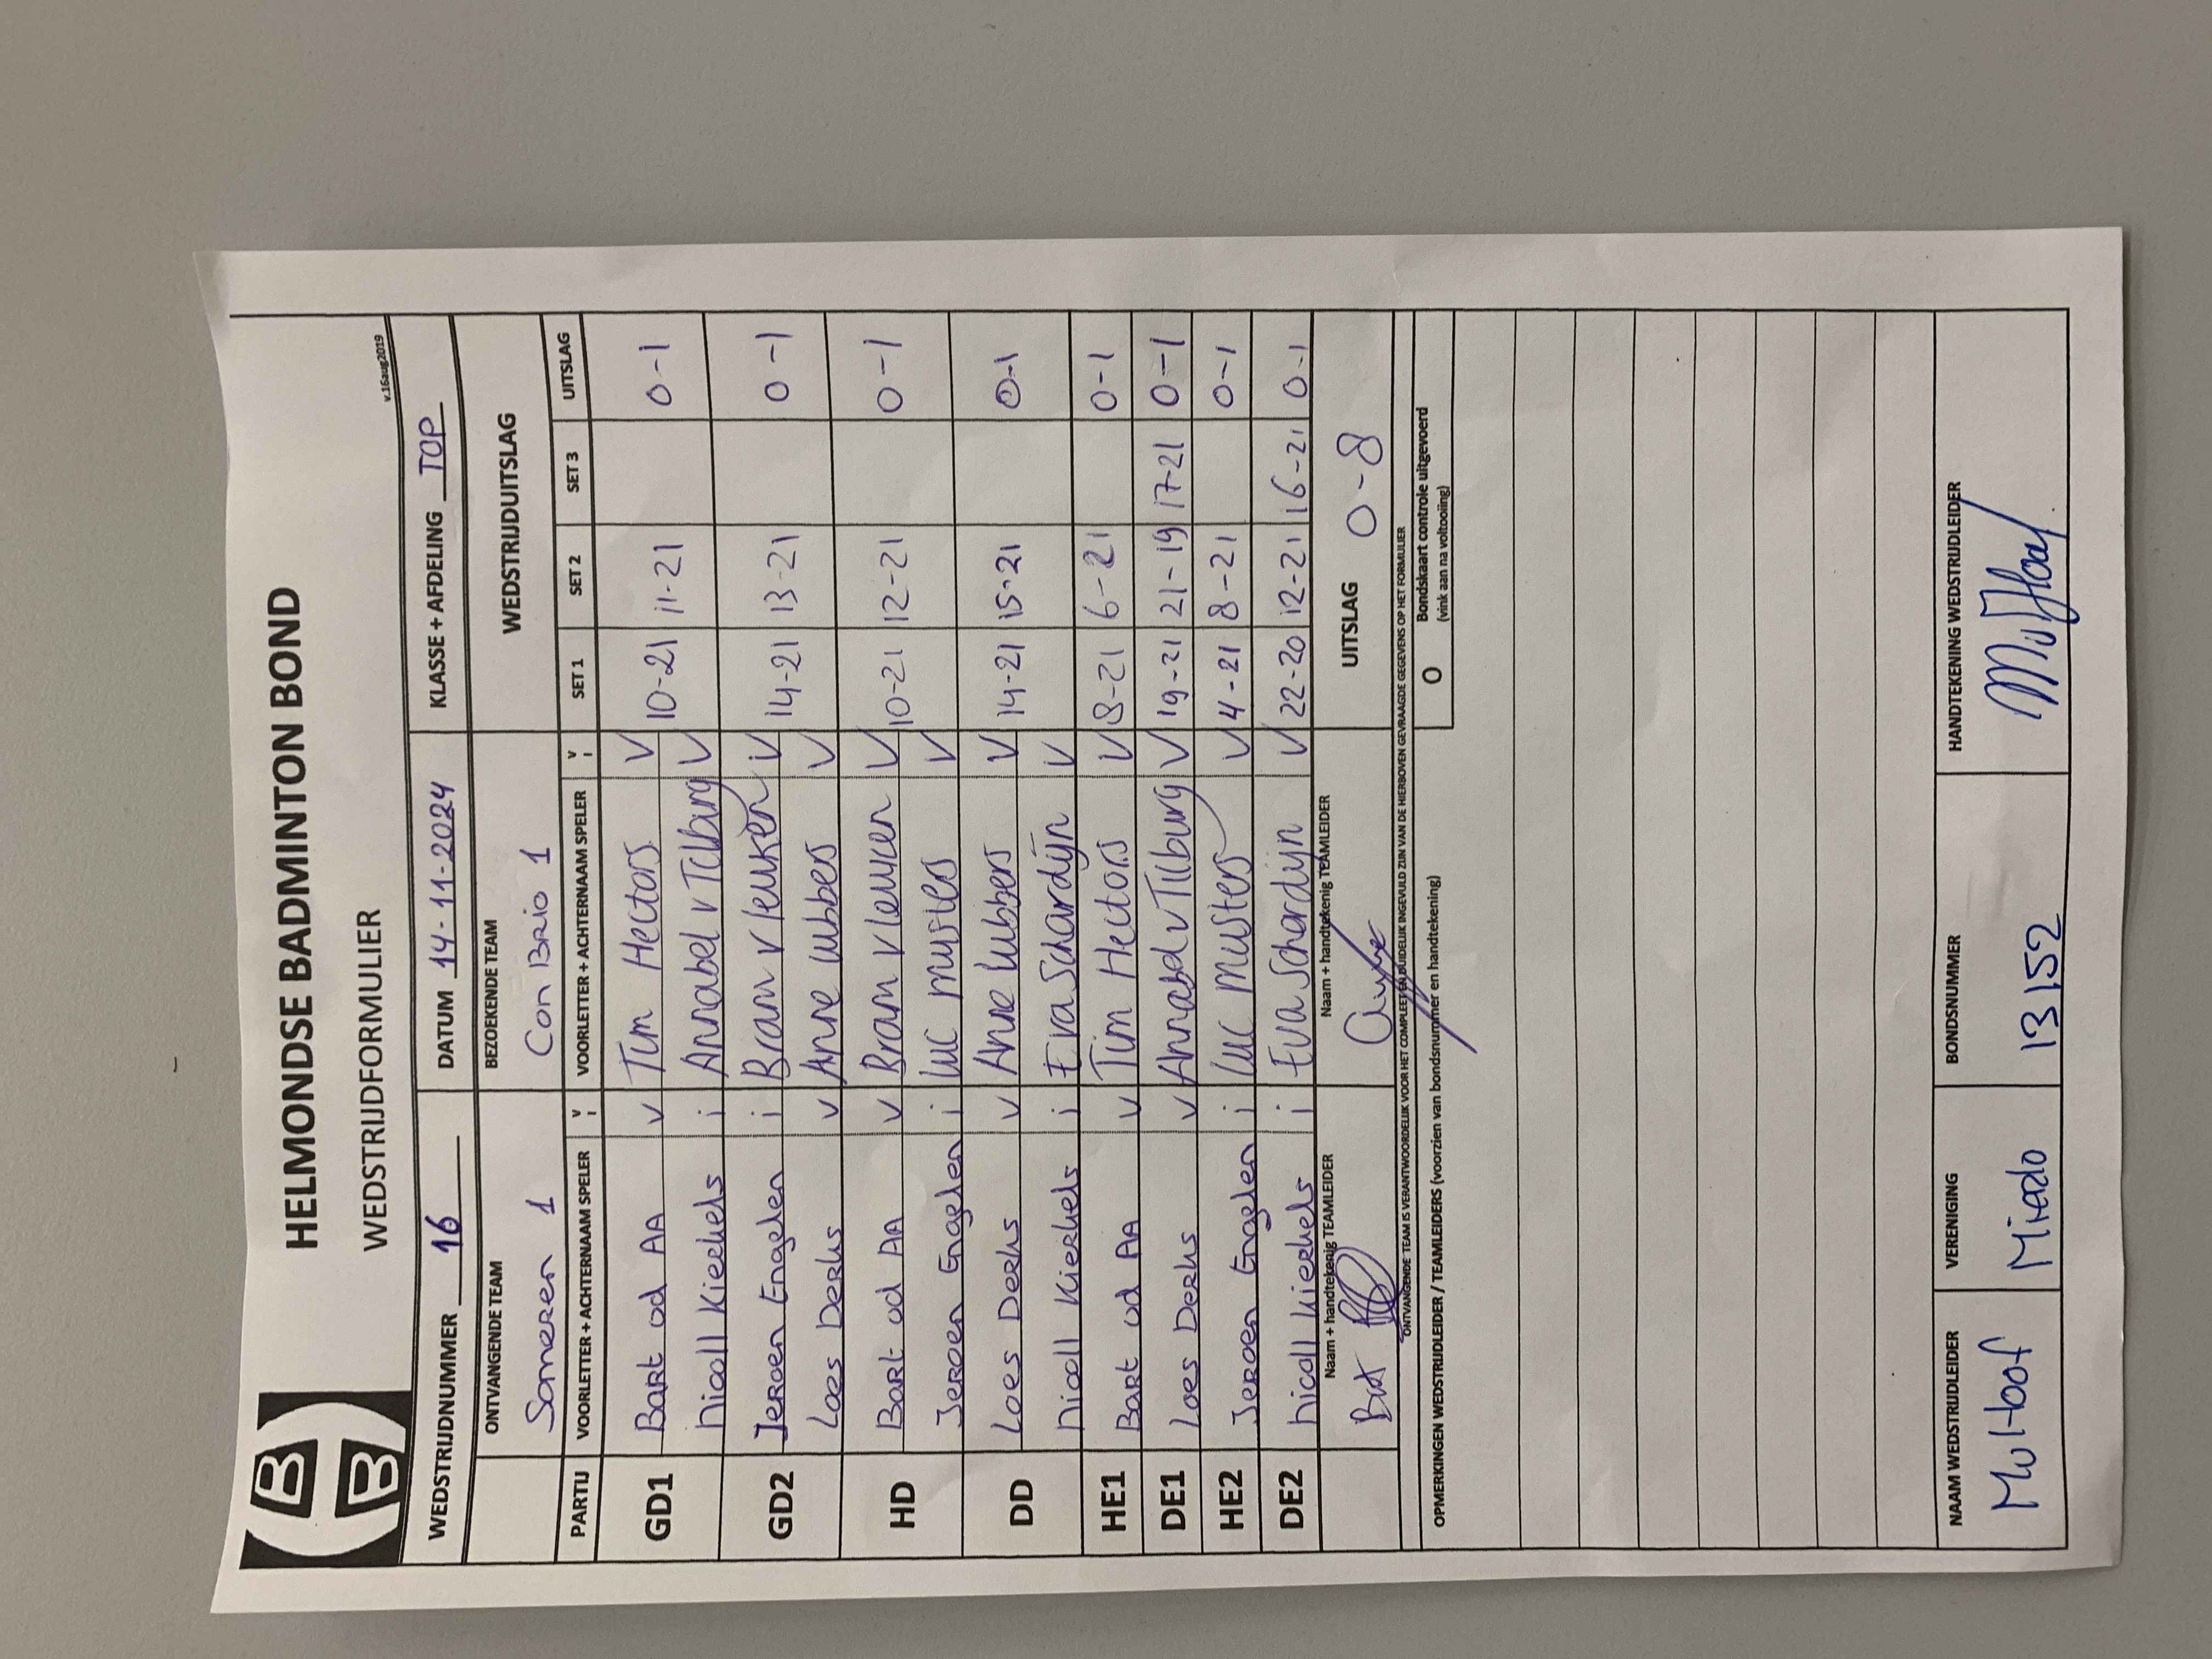 HELMONDSE BADMINTON BOND
WEDSTRIJDFORMULIER
v.16aug2019
WEDSTRIJDNUMMER 16 DATUM 14-11-2024 KLASSE + AFDELING TOP
ONTVANGENDE TEAM BEZOEKENDE TEAM WEDSTRIJDUITSLAG
Someren 1 Con Brio 1
PARTIJ VOORLETTER + ACHTERNAAM SPELER V i VOORLETTER + ACHTERNAAM SPELER V i SET 1 SET 2 SET 3 UITSLAG
GD1 Bart vd AA v Tim Hectors V 10-21 11-21 0-1
Nicoll Kierkels i Annabel v Tilburg V
GD2 Jeroen Engelen i Bram v Leuken V 14-21 13-21 0-1
Loes Derks v Anne Lubbers V
HD Bart vd AA v Bram v Leuken V 10-21 12-21 0-1
Jeroen Engelen i Luc Musters V
DD Loes Derks v Anne Lubbers V 14-21 15-21 0-1
Nicoll Kierkels i Eva Schardijn V
HE1 Bart vd AA v Tim Hectors V 8-21 6-21 0-1
DE1 Loes Derks v Annabel v Tilburg V 19-21 21-19 17-21 0-1
HE2 Jeroen Engelen i Luc Musters V 4-21 8-21 0-1
DE2 Nicoll Kierkels i Eva Schardijn V 22-20 12-21 16-21 0-1
Naam + handtekenig TEAMLEIDER Naam + handtekenig TEAMLEIDER UITSLAG 0-8
Bart
ONTVANGENDE TEAM IS VERANTWOORDELIJK VOOR HET COMPLEET EN DUIDELIJK INGEVULD ZIJN VAN DE HIERBOVEN GEVRAAGDE GEGEVENS OP HET FORMULIER
O Bondskaart controle uitgevoerd
(vink aan na voltooiing)
OPMERKINGEN WEDSTRIJDLEIDER / TEAMLEIDERS (voorzien van bondsnummer en handtekening)
NAAM WEDSTRIJDLEIDER VERENIGING BONDSNUMMER HANDTEKENING WEDSTRIJDLEIDER
Multoof Mierlo 13152